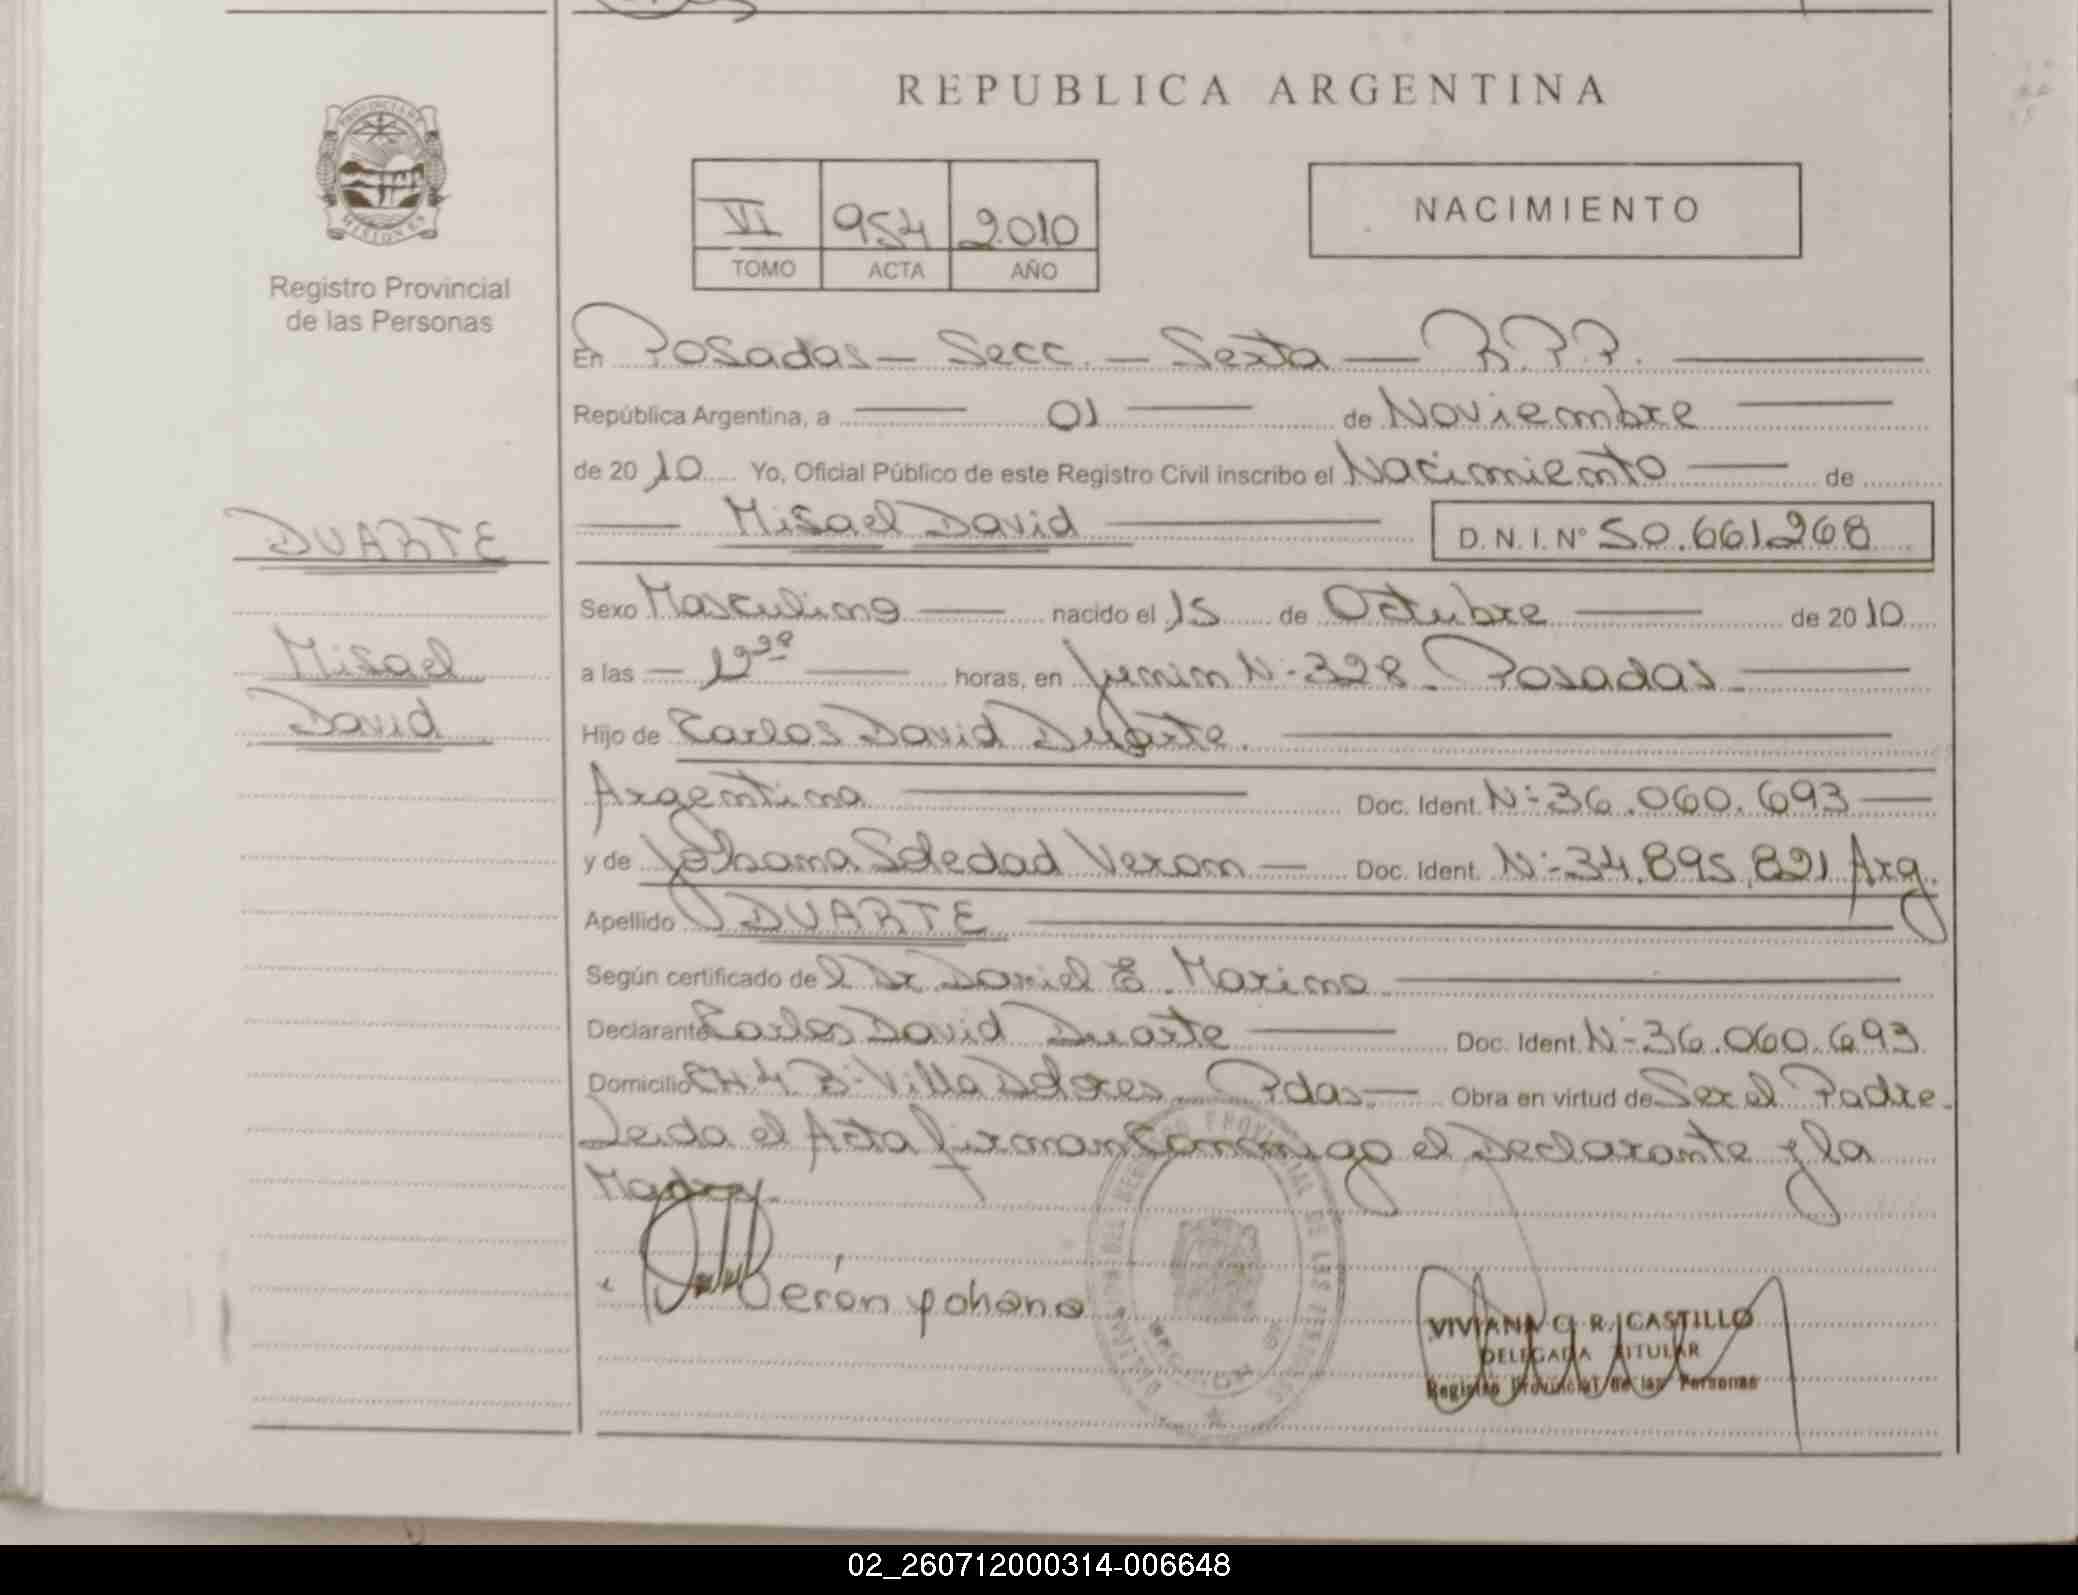 REPUBLICA ARGENTINA
PROVINCIA DE
MISIONES
Registro Provincial
de las Personas
VI 954 2010
TOMO ACTA AÑO
NACIMIENTO
En Posadas - Secc. - Sexta - R.P.P.
República Argentina, a 01 de Noviembre
de 2010 Yo, Oficial Público de este Registro Civil inscribo el Nacimiento de
Misael David D.N.I. Nº 50.661.268
DUARTE
Misael
David
Sexo Masculino nacido el 15 de Octubre de 2010
a las horas, en Junin N- 328 - Posadas -
Hijo de Carlos David Duarte.
Argentina Doc. Ident. N-36.060.693
y de Johana Soledad Veron Doc. Ident. N-34.895.821 Arg.
Apellido DUARTE
Según certificado del Dr Daniel E. Marino
Declarante Carlos David Duarte Doc. Ident. N-36.060.693
Domicilio CH 4 B- Villa Dolores - Pdas. Obra en virtud de Ser el Padre.
Leida el Acta firman Conmigo el Declarante y la
Madre.
Verón yohana
VIVIANA C. R. CASTILLO
DELEGADA TITULAR
Registro Provincial de las Personas
02_260712000314-006648